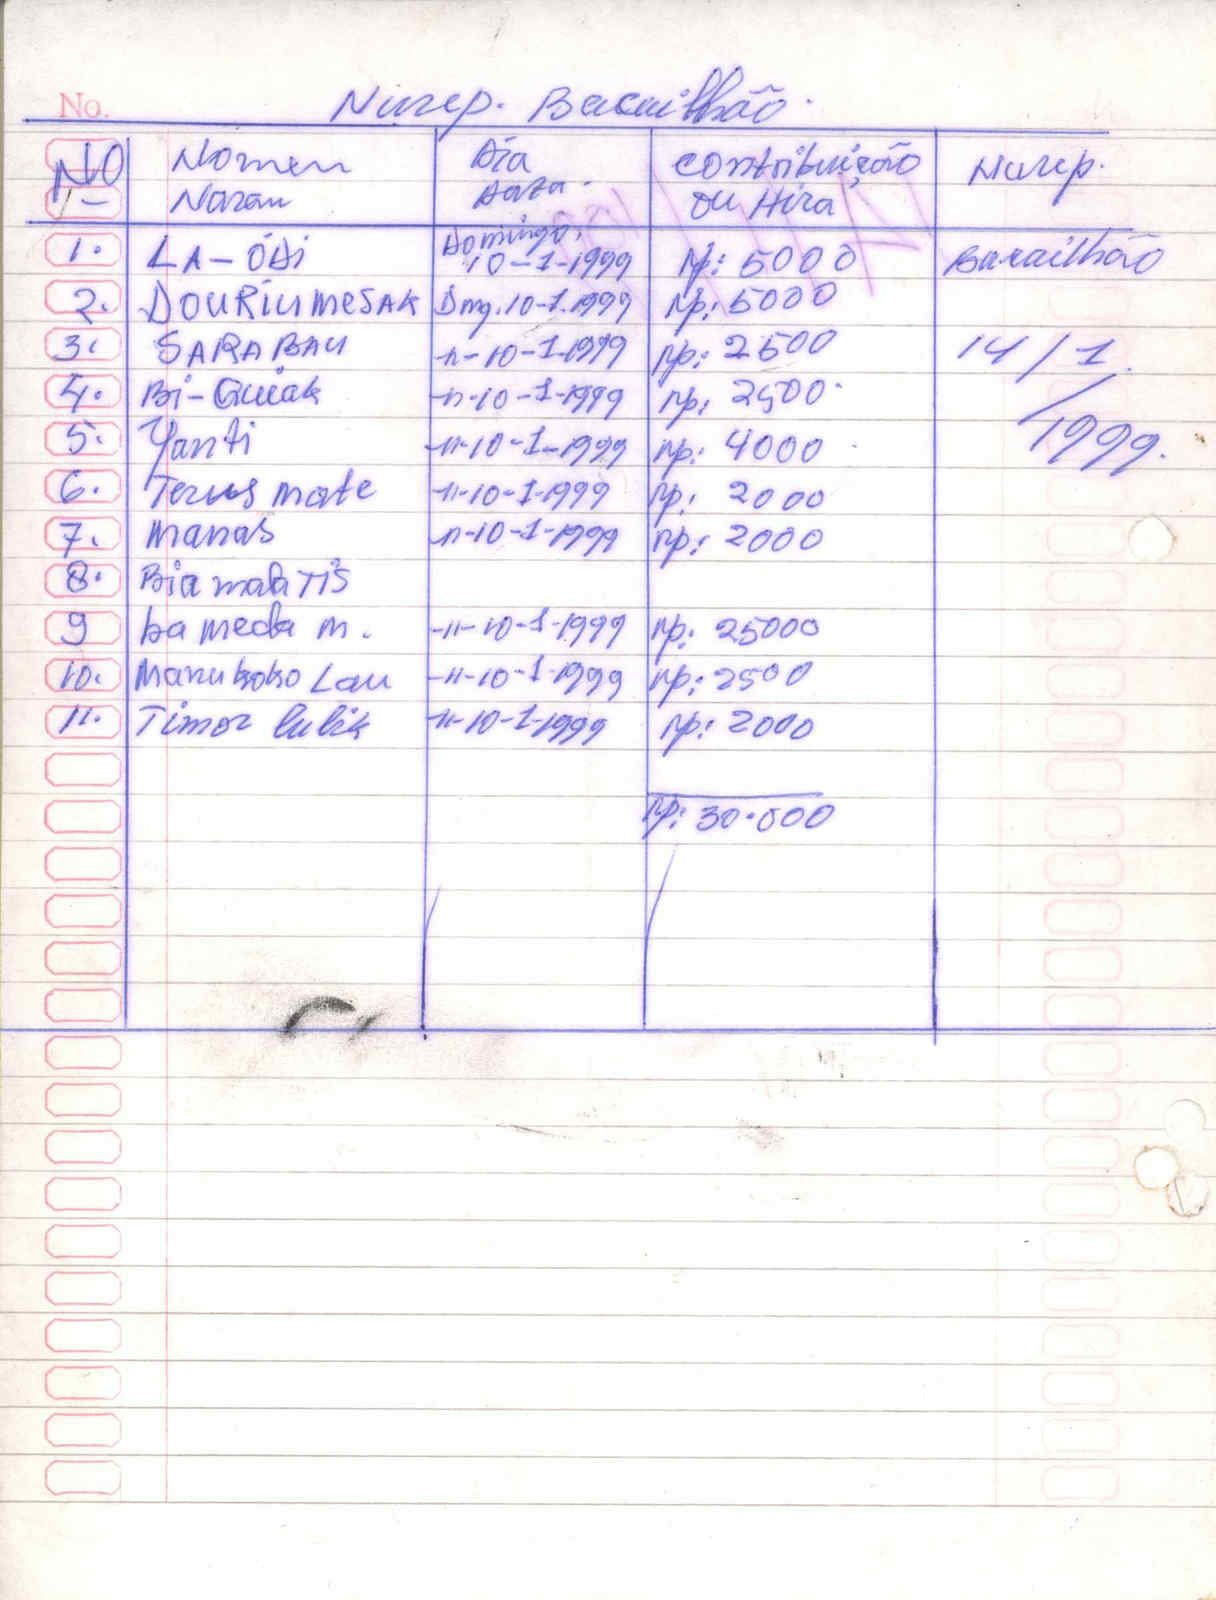 No.
Nurep. Bucailhão.
NO Nomen Dia Contribuição Nurep.
Naran Data. Ou Hira
Domingo,
1. LA-ÓDi 10-1-1999 Rp: 5000 Bucailhão
2. DOURiUMESAK Dmg. 10-1-1999 Rp: 5000
3. SARABAU -11-10-1-1999 Rp: 2500 14/1
4. Bi-Quiak -11-10-1-1999 Rp: 2500 /
5. Yanti -11-10-1-1999 Rp: 4000 1999.
6. Terus mate -11-10-1-1999 Rp: 2000
7. Manas -11-10-1-1999 Rp: 2000
8. Bia malaTiS
9 La meda m. -11-10-1-1999 Rp: 25000
10. Manukoko Lau -11-10-1-1999 Rp: 2500
11. Timor lulik -11-10-1-1999 Rp: 2000
Rp: 30.000